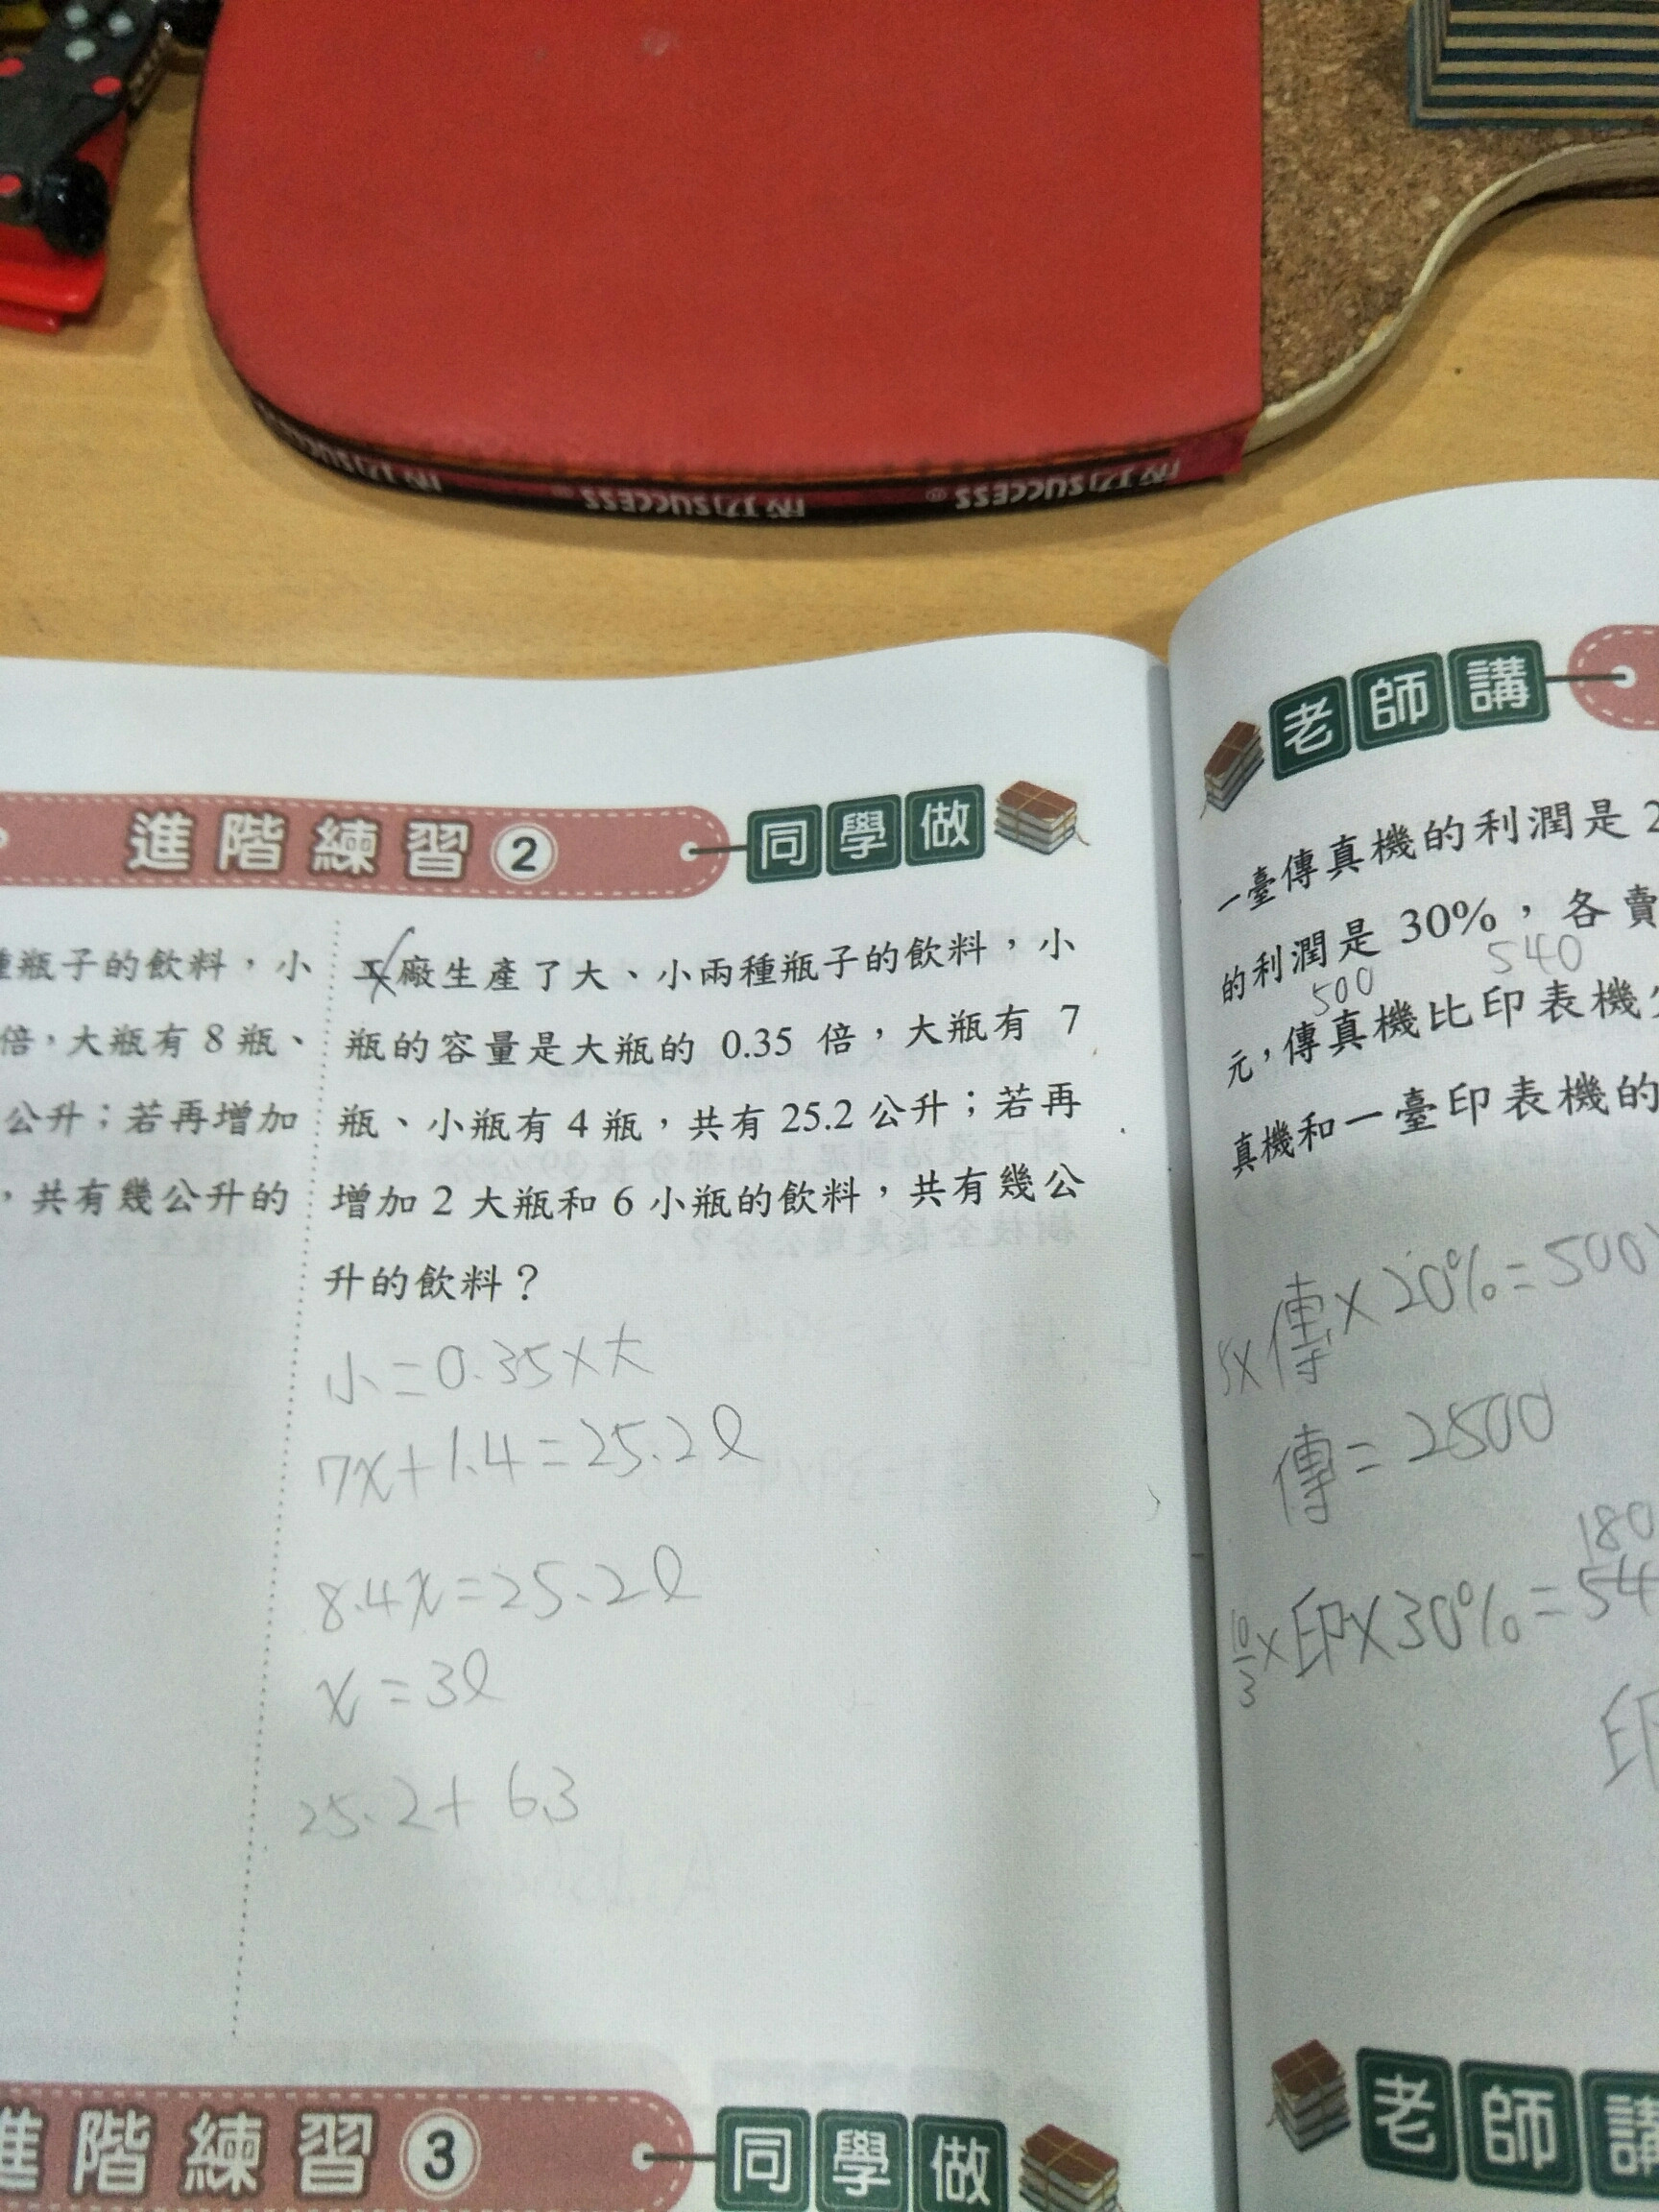 SUCCESS
SUCCESS
SUCCESS
進階練習② 同學做
種瓶子的飲料，小
倍，大瓶有8瓶、
公升；若再增加
，共有幾公升的
工廠生產了大、小兩種瓶子的飲料，小
瓶的容量是大瓶的 0.35 倍，大瓶有 7
瓶、小瓶有 4 瓶，共有 25.2 公升；若再
增加 2 大瓶和 6 小瓶的飲料，共有幾公
升的飲料？
小=0.35×大
7x+1.4=25.2l
8.4x=25.2l
x=3l
25.2+6.3
進階練習③ 同學做
老師講
一臺傳真機的利潤是 2
的利潤是 30%，各賣
500
540
元，傳真機比印表機
真機和一臺印表機的
5×傳×20%=500×
傳=2500
180
10/3×印×30%=54
印
老師講